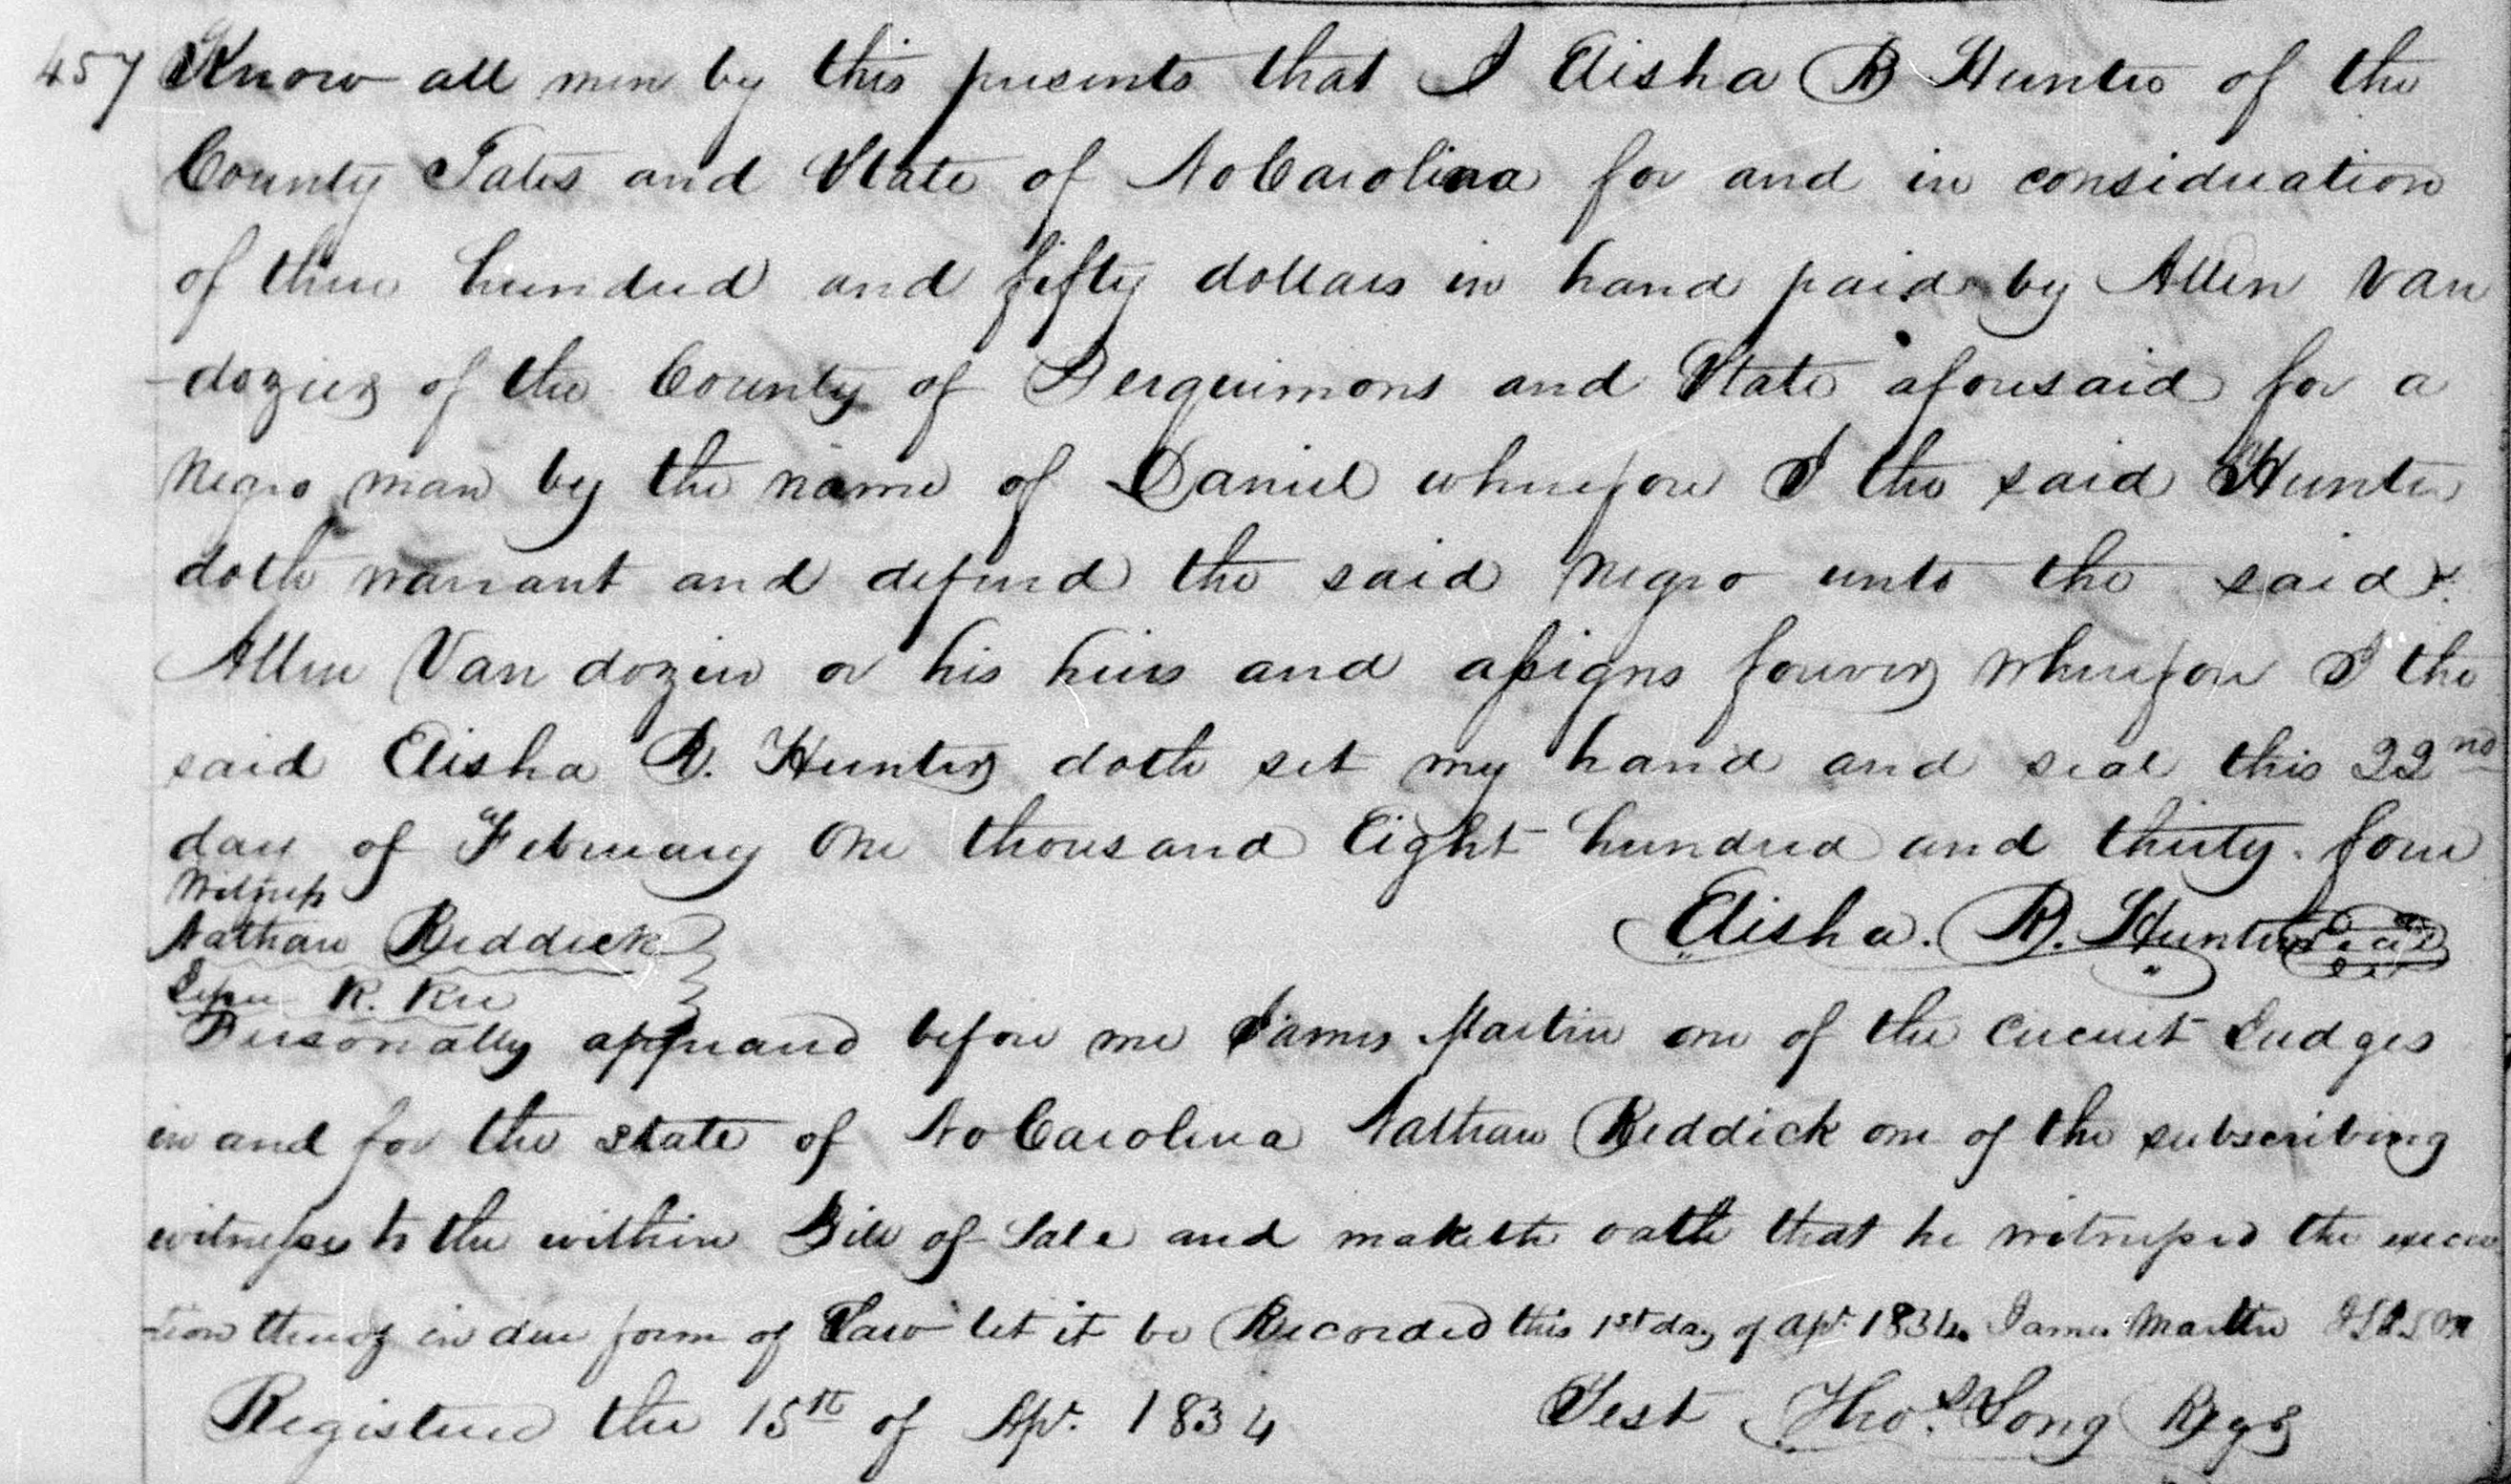 457 Know all men by this presents that I Elisha R Hunter of the
County Gates and State of No Carolina for and in consideration
of three hundred and fifty dollars in hand paid by Allen Van
-dozier of the County of Perquimons and State aforesaid for a
Negro man by the name of Daniel wherefore I the said Hunter
doth warrant and defend the said Negro unto the said
Allen Van dozier or his heirs and assigns forever wherefore I the
said Elisha R. Hunter doth set my hand and seal this 22nd
day of February One thousand Eight hundred and thirty four
Witness
Nathan Reddick
Elisha. R. Hunter Seal
R.
Personally appeard before me James Martin one of the circuit Judges
in and for the state of No Carolina Nathan Reddick one of the subscribing
witness to the within Bill of Sale and maketh oath that he witnessed the execu
-tion thereof in due form of Law let it be Recorded this 1st day of Apr. 1834 James Martin
Registered the 15th of Apr. 1834 Test Thos. Long Regr